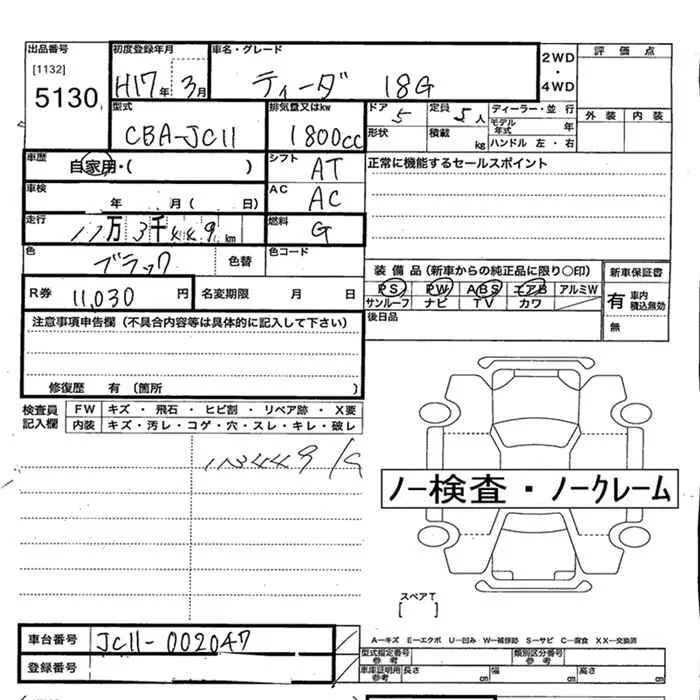 出品番号 初度登録年月 車名・グレード 2WD・4WD 評価点
[1132]
5130 H17年 3月 ティーダ 18G
型式 排気量又はkw ドア 5 定員 5人 ディーラー・並行 外装 内装
CBA-JC11 1800cc 形状 積載 kg モデル年式 年
ハンドル 左・右
車歴 自家用・( ) シフト AT 正常に機能するセールスポイント
車検 年 月( 日) AC AC
走行 11万3千449km 燃料 G
色 ブラック 色替 色コード
装備品(新車からの純正品に限り○印) 新車保証書
R券 11,030円 名変期限 月 日 PS PW ABS エアB アルミW 有 車内積込無効
サンルーフ ナビ TV カワ
注意事項申告欄(不具合内容等は具体的に記入して下さい) 後日品 無
修復歴 有(箇所 )
検査員記入欄 FW キズ・飛石・ヒビ割・リペア跡・X要
内装 キズ・汚レ・コゲ・穴・スレ・キレ・破レ
113449
ノー検査・ノークレーム
スペアT
[ ]
車台番号 JC11-002047 A−キズ E−エクボ U−凹み W−補修跡 S−サビ C−腐食 XX−交換済
型式指定番号 参考 類別区分番号 参考
登録番号 車庫証明用参考 長さ cm 幅 cm 高さ cm